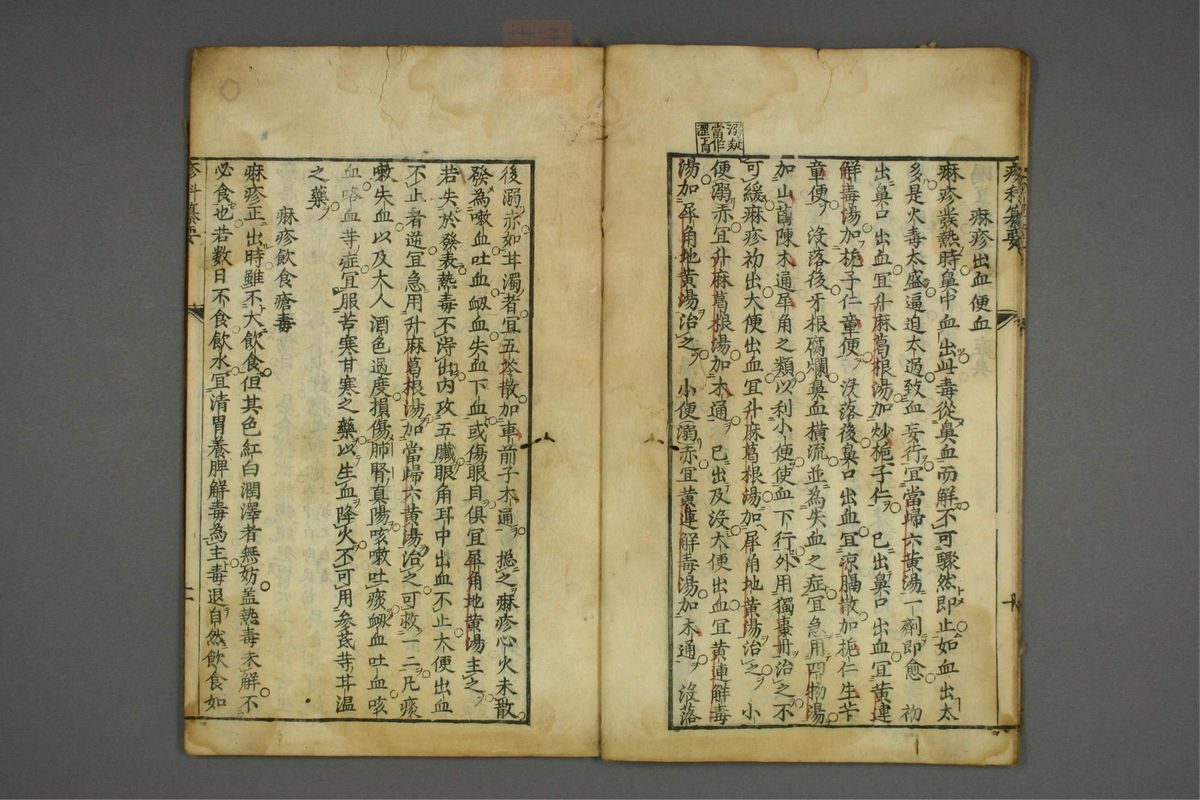 疹科纂要
麻疹出血便血
麻疹發熱時鼻中血出毒從鼻血而解不可驟然即止如血出太
多是火毒太盛逼迫太過致血妄行宜當歸六黃湯一劑即愈 初
出鼻口出血宜升麻葛根湯加炒梔子仁 已出鼻口出血宜黃連
解毒湯加梔子仁童便 沒落後鼻口出血宜涼膈散加梔仁生芐
童便 沒落後牙根腐爛鼻血橫流並為失血之症宜急用四物湯
加山茵陳木通犀角之類以利小便使血下行外用獨棗丹治之不
可緩麻疹初出大便出血宜升麻葛根湯加犀角地黃湯治之 小
便溺赤宜升麻葛根湯加木通 已出及沒大便出血宜黃連解毒
湯加犀角地黃湯治之 小便溺赤宜黃連解毒湯加木通 沒落
溺疑
當作
十
後溺赤如甘濁者宜五苓散加車前子木通 摠之麻疹心火未散
發為嗽血吐血衂血失血下血或傷眼目俱宜犀角地黃湯主之
若失於發表熱毒不得出內攻五臟眼角耳中出血不止大便出血
不止者逆宜急用升麻葛根湯加當歸六黃湯治之可救一二凡痰
嗽失血以及大人酒色過度損傷肺腎真陽咳嗽吐痰衂血吐血咳
血咯血等症宜服苦寒甘寒之藥以生血降火不可用參芪等甘溫
之藥
麻疹飲食瘡毒
麻疹正出時雖不大飲食但其色紅白潤澤者無妨盖熱毒未解不
必食也若數日不食飲水宜清胃養脾解毒為主毒退自然飲食如
疹科纂要